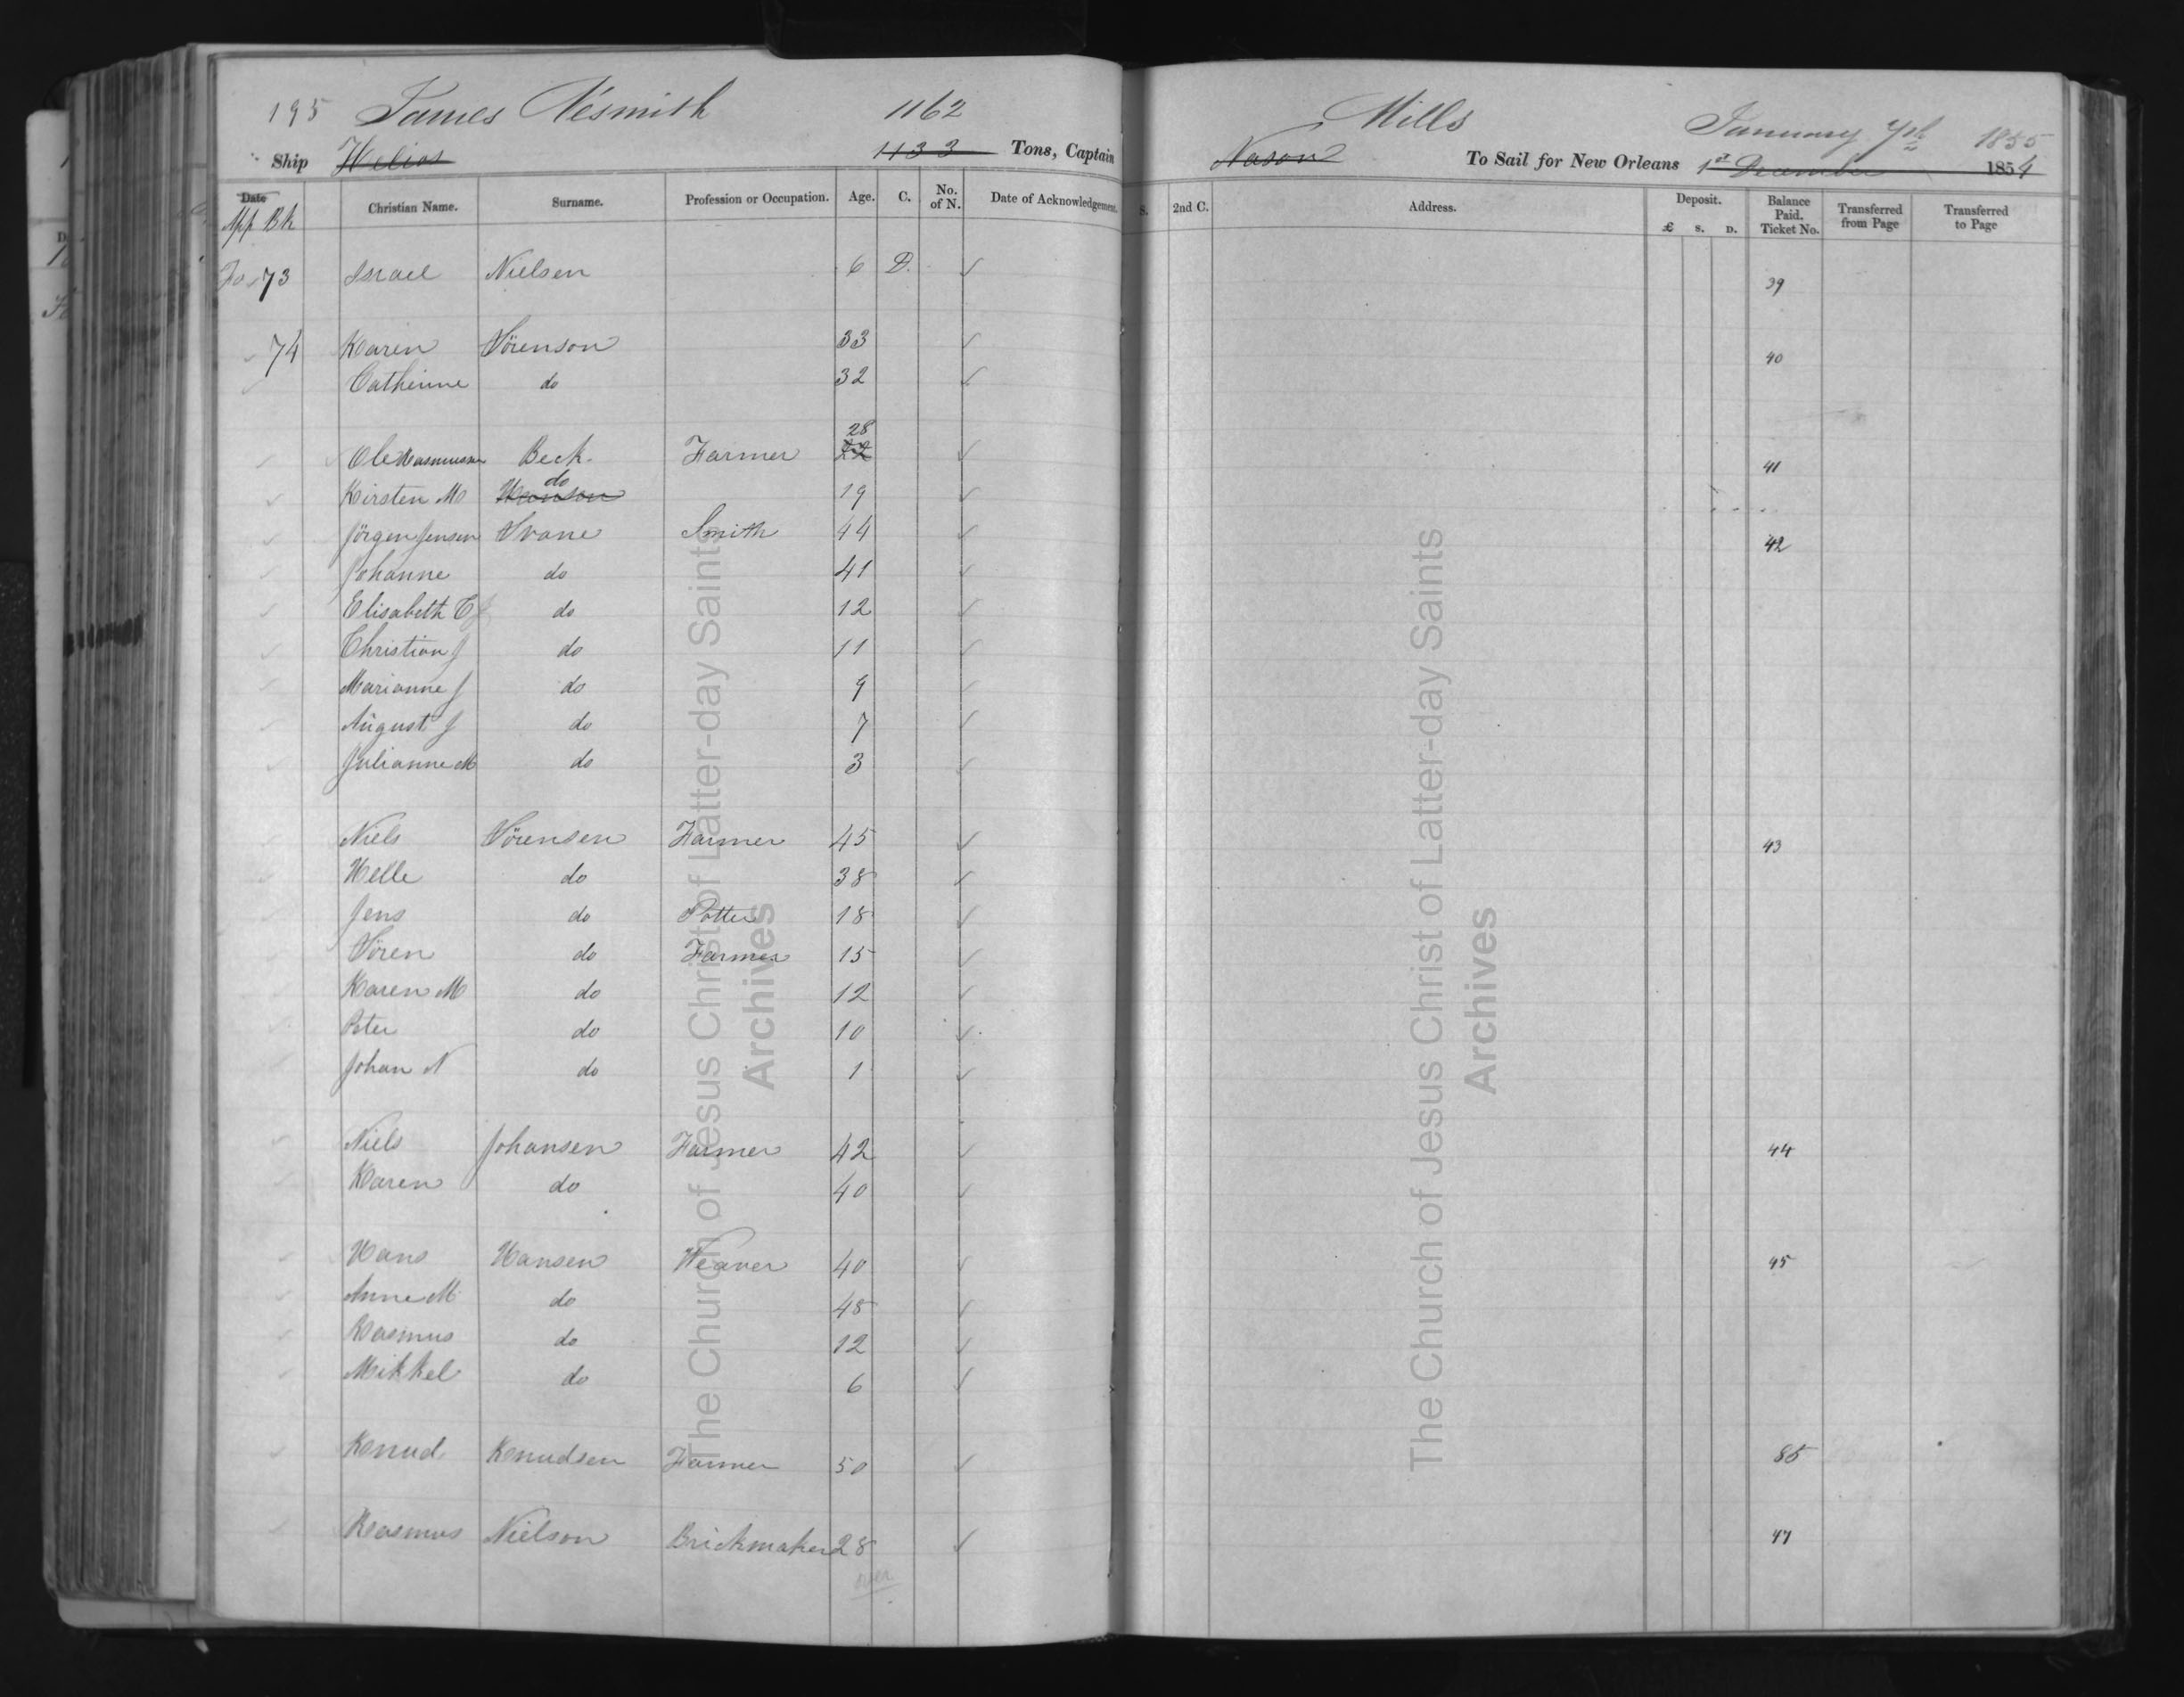 195 James Nesmith 1162 Mills January 7th 1855
Ship Helios 1133 Tons, Captain Nason To Sail for New Orleans 1st December 1854
Date Christian Name. Surname. Profession or Occupation. Age. C. No. of N. Date of Acknowledgement. S. 2nd C. Address. Deposit. £ S. D. Balance Paid. Ticket No. Transferred from Page Transferred to Page
App Bk
Fo 73 Israel Nielsen 6 D. ✓ 39
74 Karen Sörenson 33 ✓ 40
Catherine do 32 ✓
28
Ole Rasmussen Beck Farmer 22 ✓ 41
do
Kirsten M Hanson 19 ✓
Jörgen Jensen Svane Smith 44 ✓ 42
Johanne do 41 ✓
Elisabeth C J do 12 ✓
Christian J do 11 ✓
Marianne J do 9 ✓
August J do 7 ✓
Julianne M do 3 ✓
Niels Sörensen Farmer 45 ✓ 43
Helle do 38 ✓
Jens do Potter 18 ✓
Sören do Farmer 15 ✓
Karen M do 12 ✓
Peter do 10 ✓
Johan N do 1 ✓
Niels Johansen Farmer 42 ✓ 44
Karen do 40 ✓
Hans Hansen Weaver 40 ✓ 45
Anne M do 48 ✓
Rasmus do 12 ✓
Mikkel do 6 ✓
Knud Knudsen Farmer 50 ✓ 85
Rasmus Nielson Brickmaker 28 ✓ 47
over
The Church of Jesus Christ of Latter-day Saints
Archives
The Church of Jesus Christ of Latter-day Saints
Archives